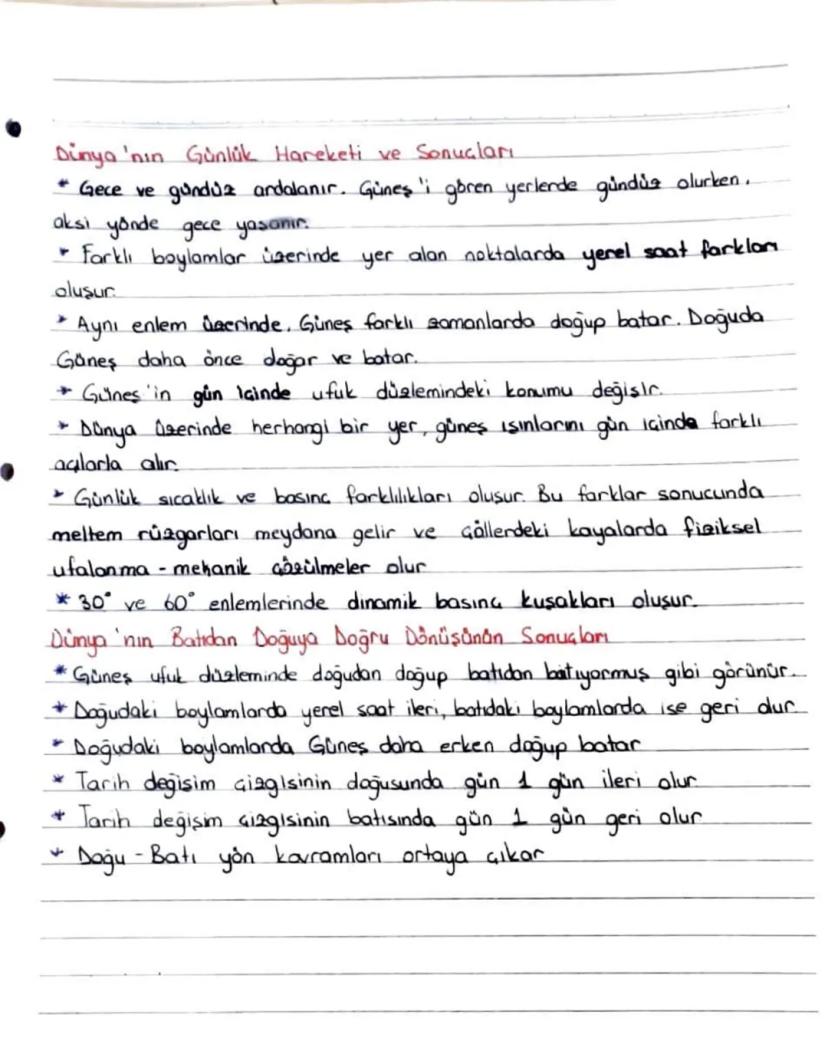 Dünya'nın Günlük Hareketi ve Sonuçları
* Gece ve gündüz ardalanır. Güneş'i gören yerlerde gündüz olurken,
aksi yönde gece yaşanır.
* Farklı boylamlar üzerinde yer alan noktalarda yerel saat farkları
oluşur.
* Aynı enlem üzerinde, Güneş farklı zamanlarda doğup batar. Doğuda
Güneş daha önce doğar ve batar.
* Güneş'in gün içinde ufuk düzlemindeki konumu değişir.
* Dünya üzerinde herhangi bir yer, güneş ışınlarını gün içinde farklı
açılarla alır.
* Günlük sıcaklık ve basınç farklılıkları oluşur. Bu farklar sonucunda
meltem rüzgarları meydana gelir ve çöllerdeki kayalarda fiziksel
ufalanma - mekanik çözülmeler olur
* 30° ve 60° enlemlerinde dinamik basınç kuşakları oluşur.
Dünya'nın Batıdan Doğuya Doğru Dönüşünün Sonuçları
* Güneş ufuk düzleminde doğudan doğup batıdan batıyormuş gibi görünür.
* Doğudaki boylamlarda yerel saat ileri, batıdaki boylamlarda ise geri dur
* Doğudaki boylamlarda Güneş daha erken doğup batar
* Tarih değişim çizgisinin doğusunda gün 1 gün ileri olur
* Tarih değişim çizgisinin batısında gün 1 gün geri olur
* Doğu - Batı yön kavramları ortaya çıkar